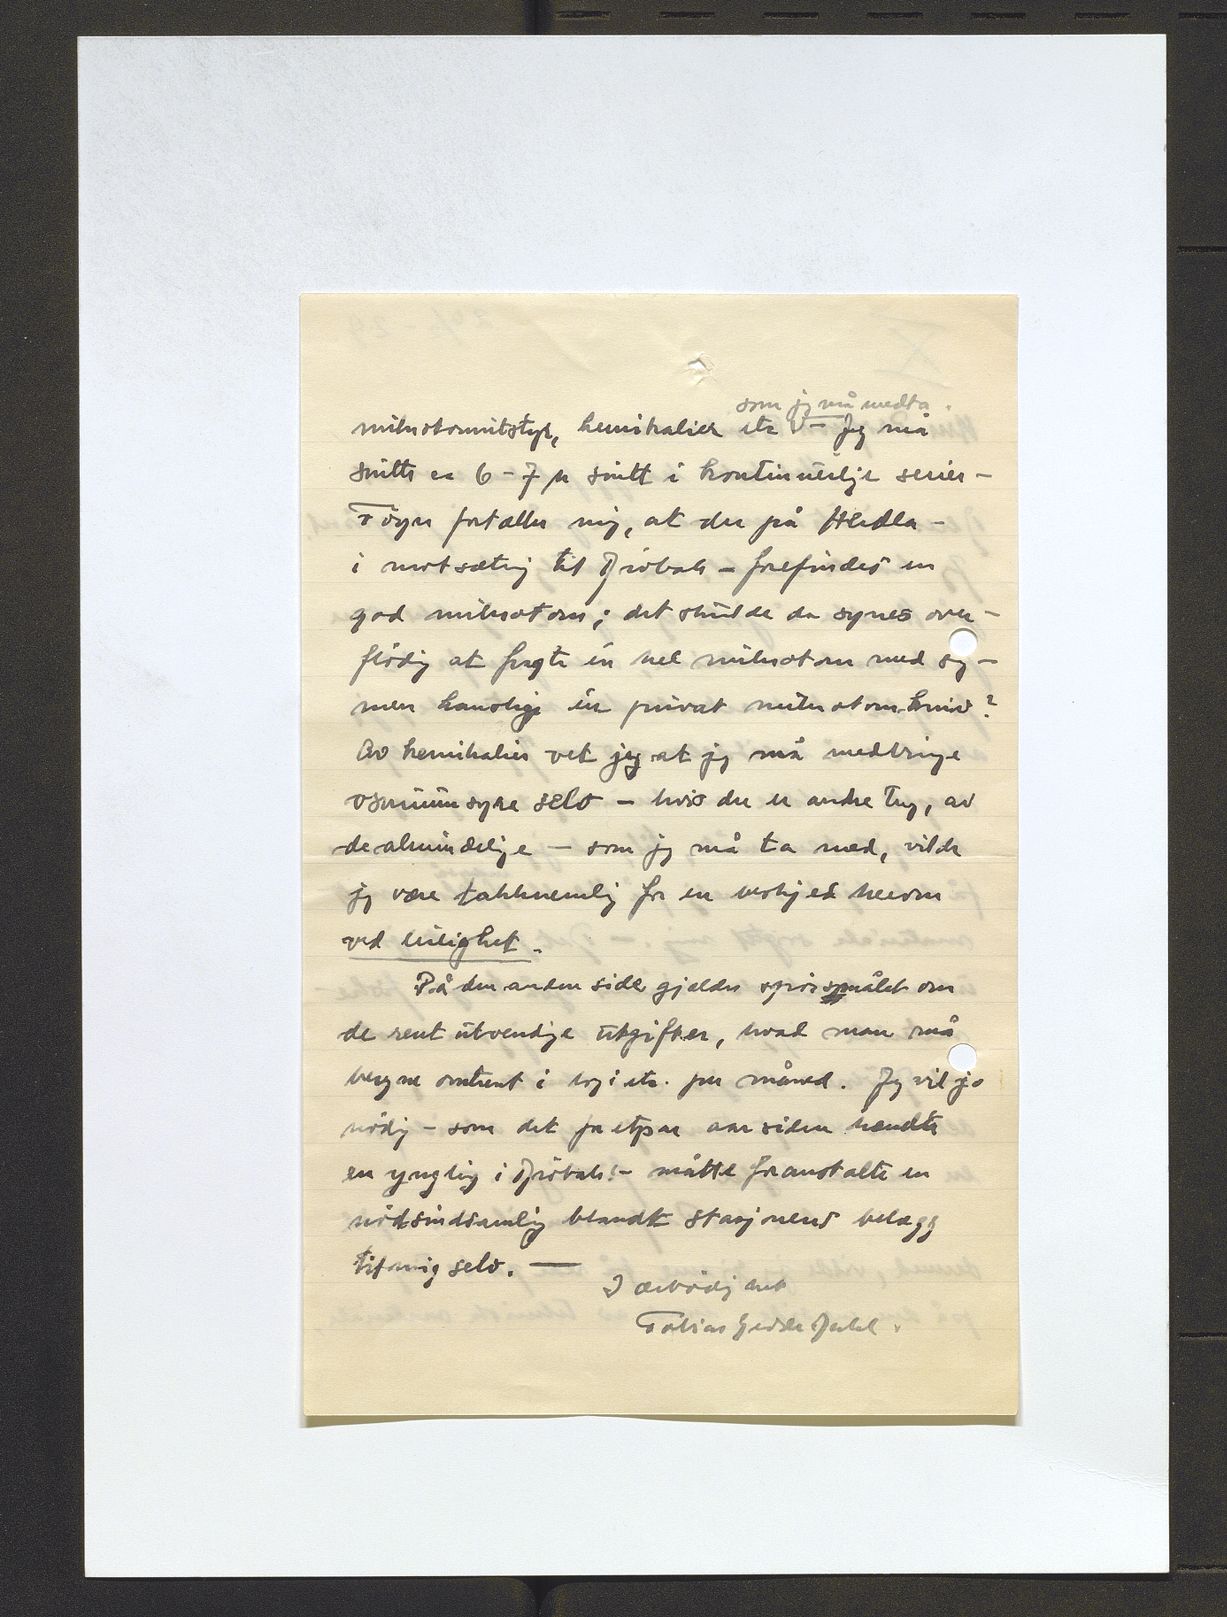 som jeg må medta.
mikrotomutstyr, kemikalier etc V – Jeg må
snitte ca 6 – 7 μ snitt i kontinuerlige serier –
Föyn fortæller mig, at der på Herdla –
i motsætnig til Dröbak – forefindes en
god mikrotom; det skulde da synes over-
flödig at fragte en hel mikrotom med sig –
men kanske en privat mikrotomkniv?
Av kemikalier vet jeg at jeg må medbringe
osmiumsyre selv – hvis der er andre ting, av
de almindelige – som jeg må ta med, vilde
jeg være takknemlig for en beskjed herom
ved leilighet.
På den anden side gjelder spörsmålet om
de rent utvendige utgifter, hvad man må
beregne omtrent i losji etc. per måned. Jeg vil jo
nödig – som det for et par aar siden hændte
en yngling i Dröbak! – måtte foranstalte en
nödsindsamling blandt stasjonens belægg
til mig selv. —
I ærbödighet
Tobias Gedde Dahl.